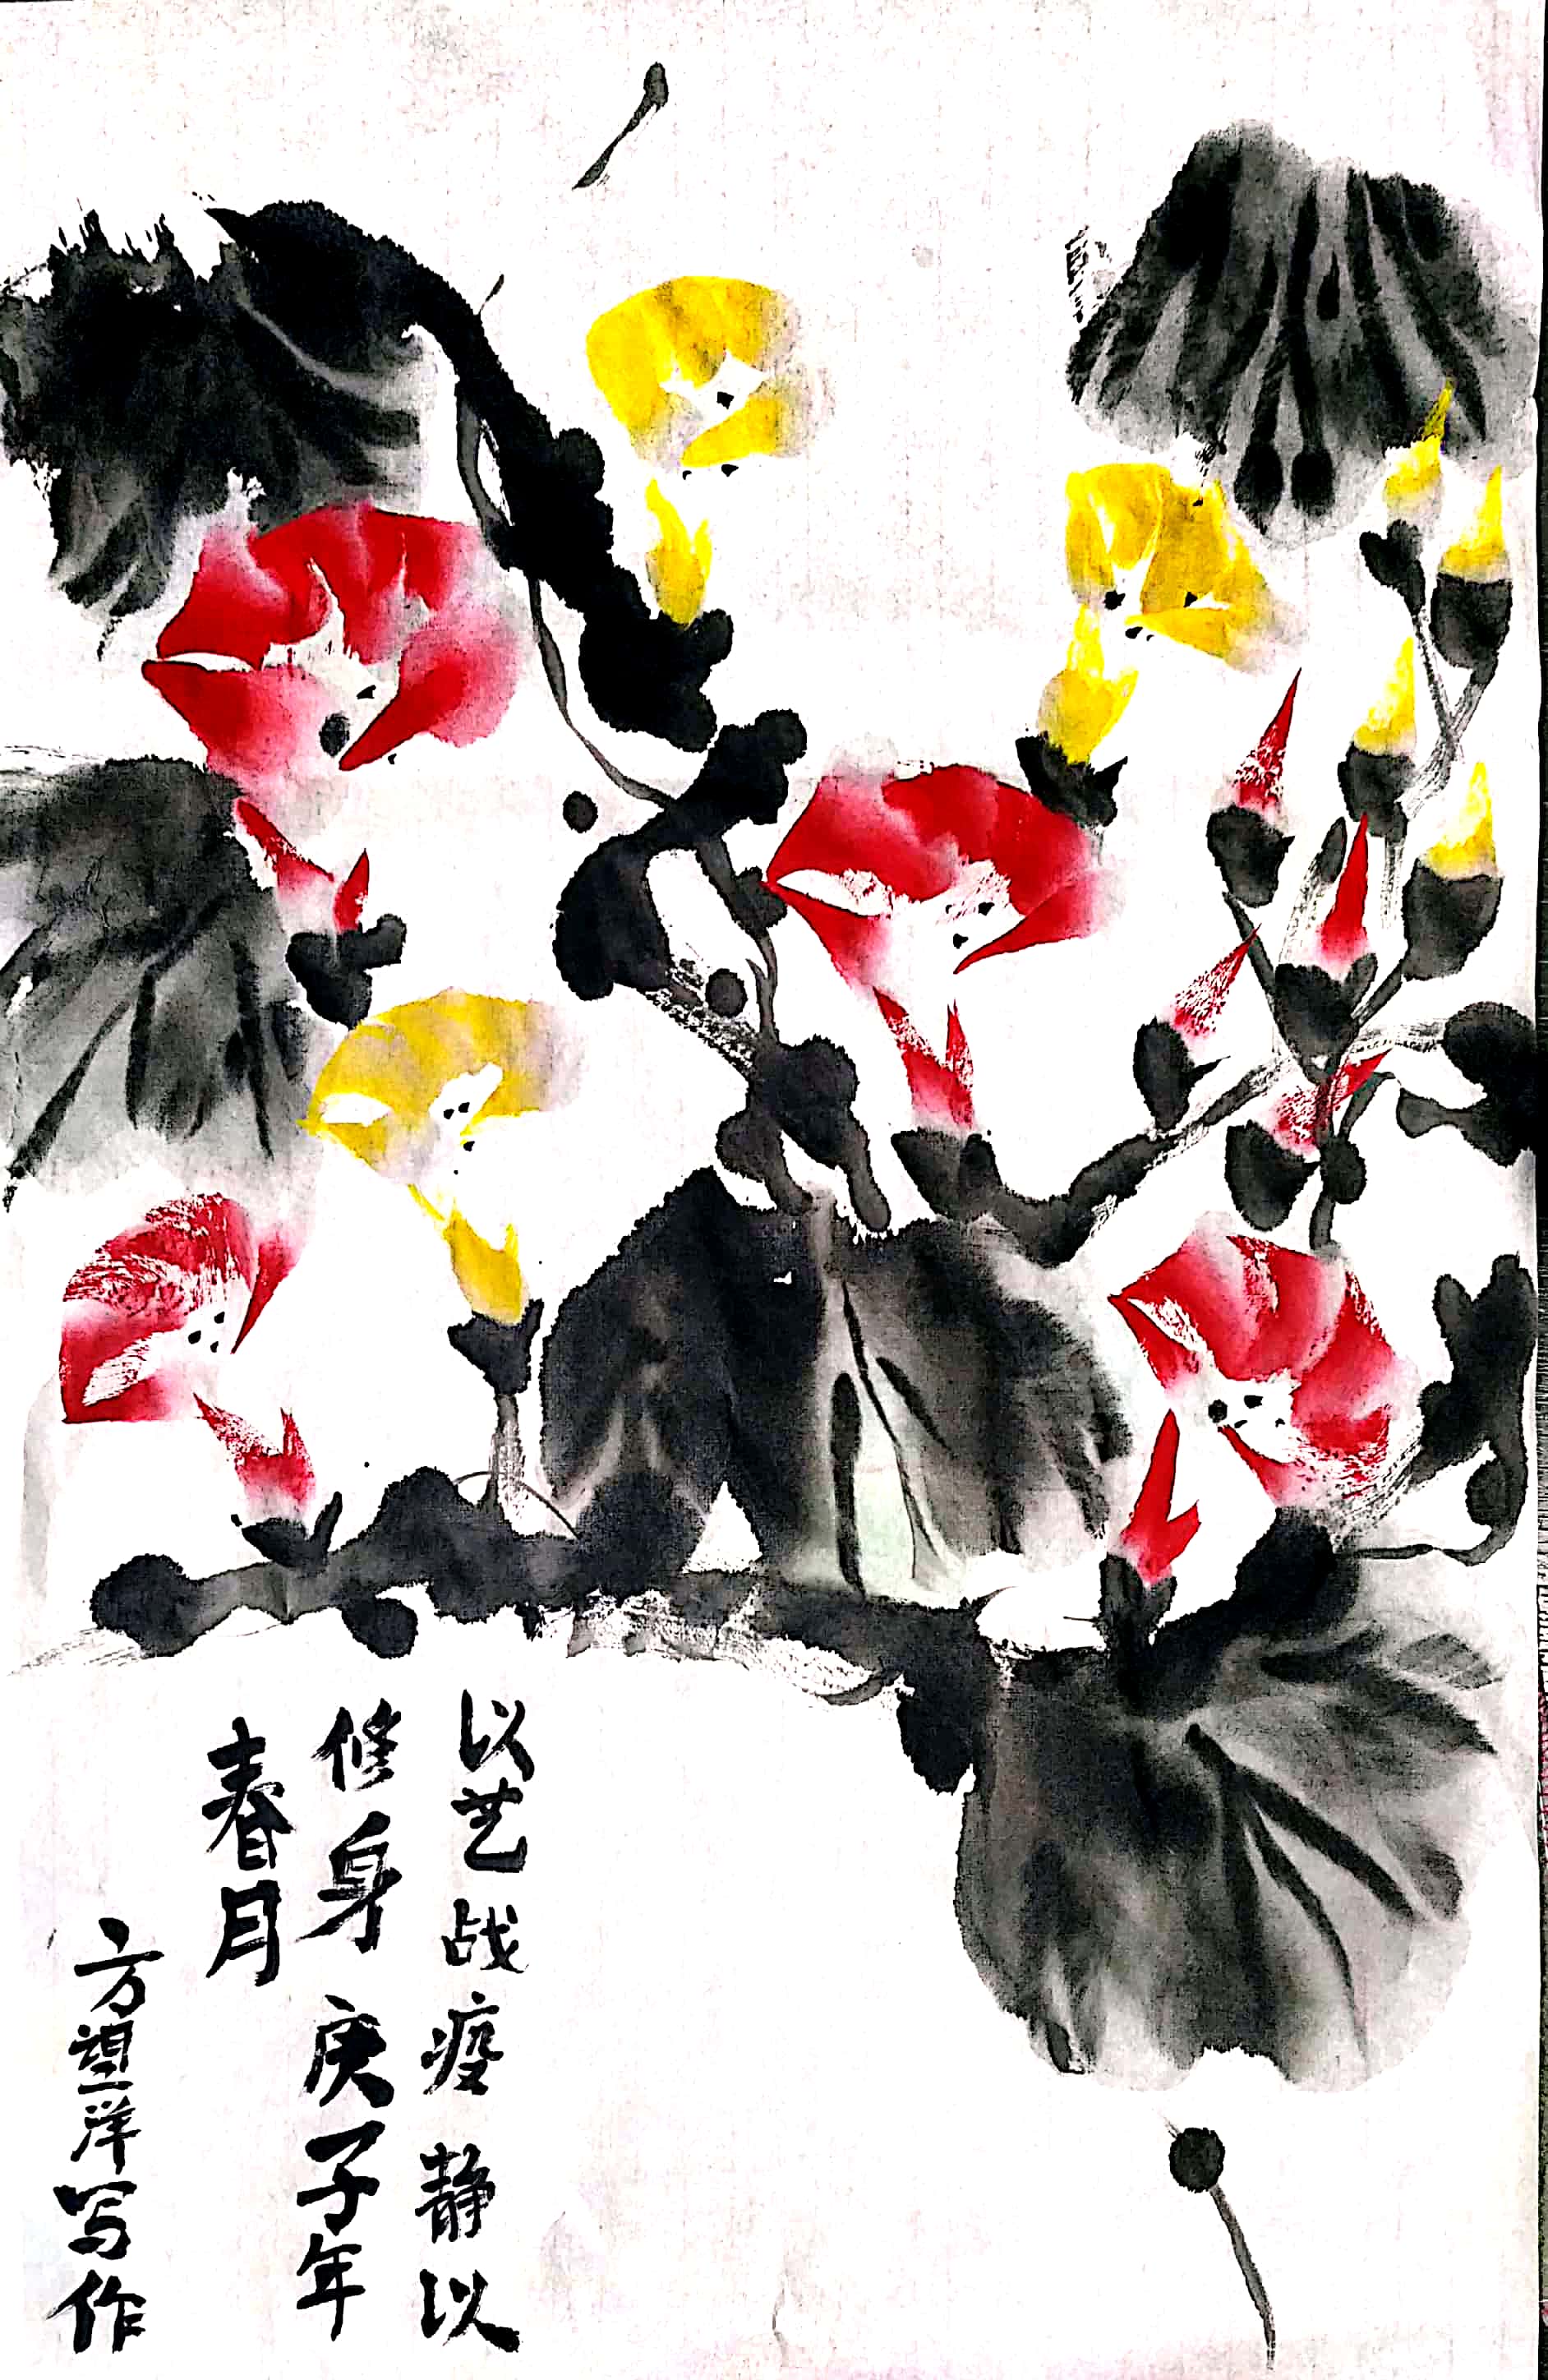 以艺战疫静以
修身庚子年
春月
方望洋写作